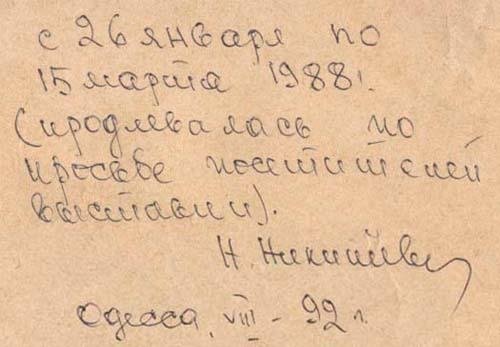 с 26 января по
15 марта 1988г.
(продлевалась по
просьбе посетителей
выставки).
Н.
Одесса, VIII - 92 г.